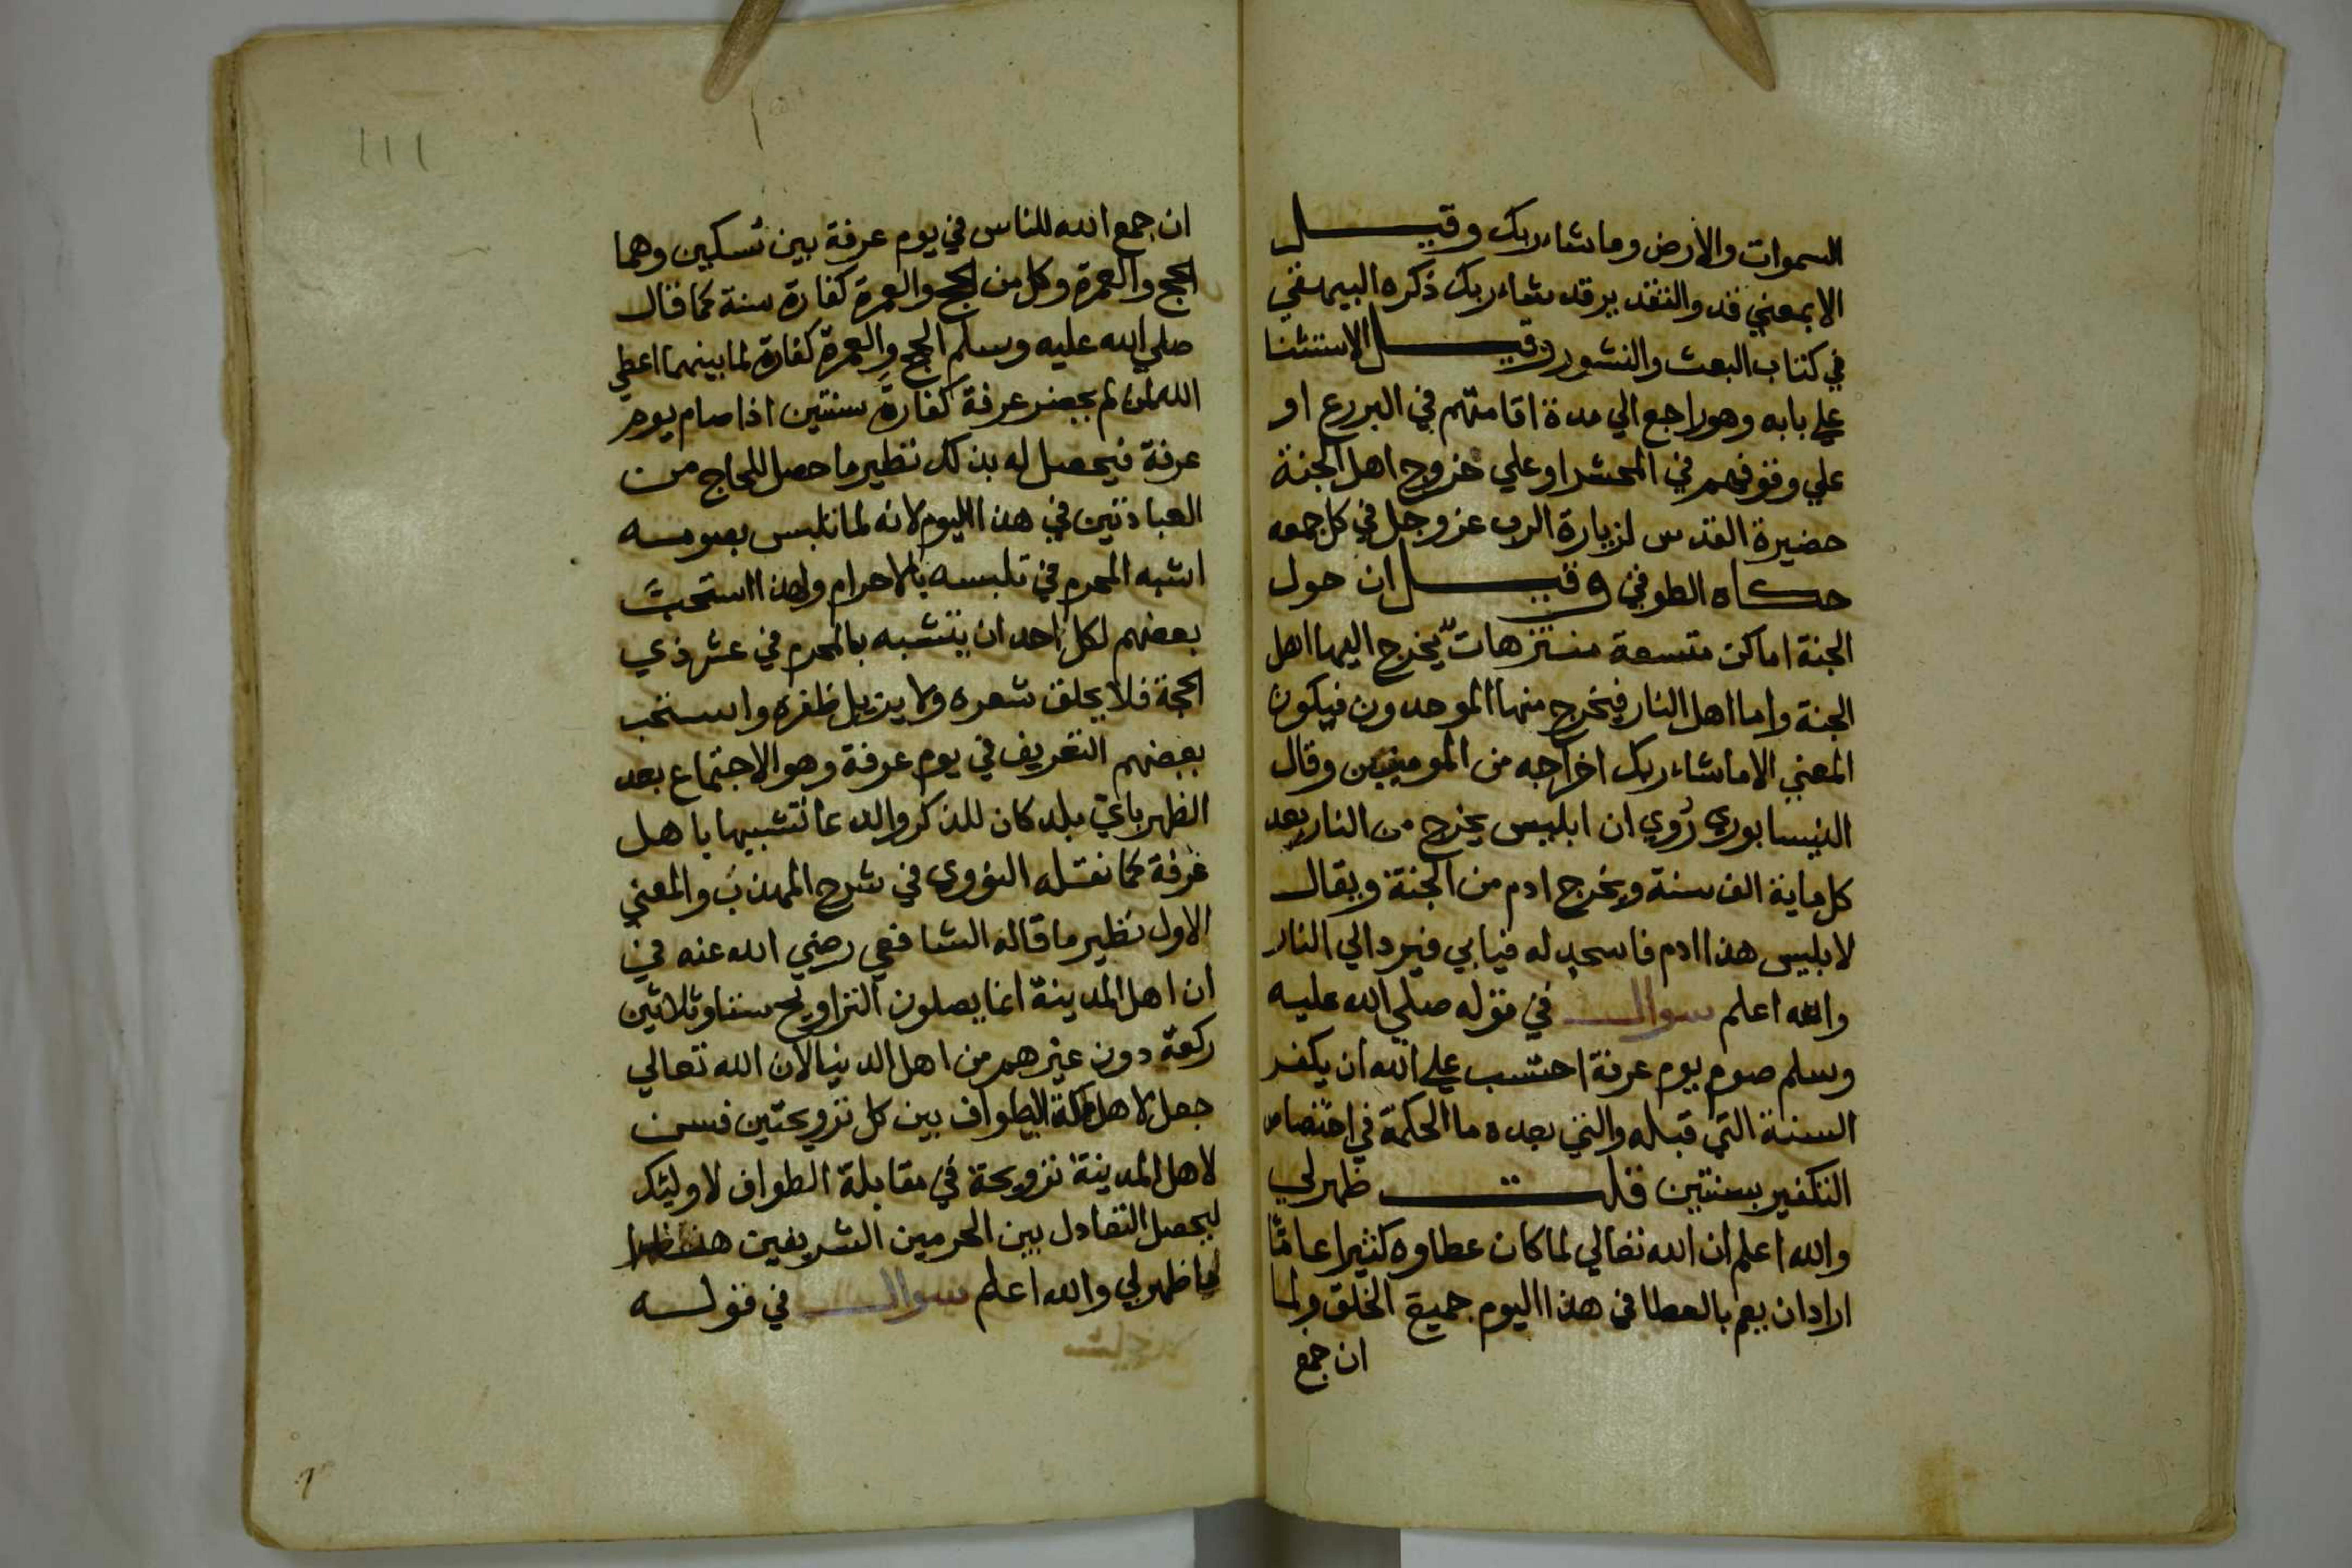 السموات والارض وما شاء ربك وقيل
الا بمعني قد والتقدير قد شاء ربك ذكره البيهقي
في كتاب البعث والنشور وقيل الاستثنا
علي بابه وهو راجع الي مدة اقامتهم في البرزخ او
علي وقوفهم في المحشر او علي خروج اهل الجنة
حضيرة القدس لزيارة الرب عز وجل في كل جمعه
حكاه الطوفي وقيل ان حول
الجنة اماكن متسعة منتزهات يخرج اليها اهل
الجنة واما اهل النار فيخرج منها الموحدون فيكون
المعني الا ما شاء ربك اخراجه من المومنين وقال
النيسابوري رُوي ان ابليس يخرج من النار بعد
كل ماية الف سنة ويخرج ادم من الجنة ويقال
لابليس هذا ادم فاسجد له فيابي فيرد الي النار
والله اعلم سوال في قوله صلي الله عليه
وسلم صوم يوم عرفة احتسب علي الله ان يكفر
السنة التي قبله والتي بعده ما الحكمة في اختصاص
التكفير بسنتين قلت ظهر لي
والله اعلم ان الله تعالي لما كان عطاوه كثيرا عامًا
اراد ان يعم بالعطا في هذا اليوم جميع الخلق ولما
ان جمع
١١١
ان جمع الله للناس في يوم عرفة بين نسكين وهما
الحج والعمرة وكل من الحج والعمرة كفارة سنة كما قال
صلي الله عليه وسلم الحج والعمرة كفارة لما بينهما اعطي
الله لمن لم يحضر عرفة كفارة سنتين اذا صام يوم
عرفة فيحصل له بذلك نظير ما حصل للحاج من
العبادتين في هذا اليوم لانه لما تلبس بصومه
اشبه المحرم في تلبسه بالاحرام ولهذا استحب
بعضهم لكل احد ان يتشبه بالمحرم في عشر ذي
الحجة فلا يحلق شعره ولا يزيل ظفره واستحب
بعضهم التعريف في يوم عرفة وهو الاجتماع بعد
الظهر باي بلد كان للذكر والدعا تشبيها باهل
عرفة كما نقله النووي في شرح المهذب والمعني
الاول نظير ما قاله الشافعي رضي الله عنه في
ان اهل المدينة انما يصلون التراويح ستا وثلاثين
ركعة دون غيرهم من اهل الدنيا لان الله تعالي
جعل لاهل مكة الطواف بين كل ترويحتين فسن
لاهل المدينة ترويحة في مقابلة الطواف لاوليك
ليحصل التعادل بين الحرمين الشريفين هذا
ما ظهر لي والله اعلم سوال في قوله